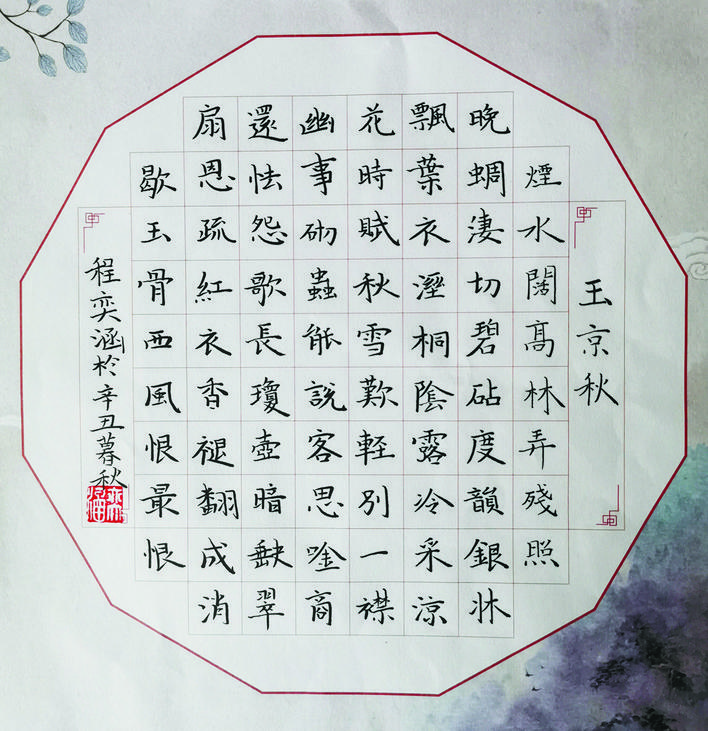 玉京秋
煙水闊高林弄殘照
晚蜩淒切碧砧度韻銀牀
飄葉衣溼桐陰露冷采涼
花時賦秋雪歎輕別一襟
幽事砌蟲能說客思唫商
還怯怨歌長瓊壺暗缺翠
扇恩疏紅衣香褪翻成消
歇玉骨西風恨最恨
程奕涵於辛丑暮秋
奕涵